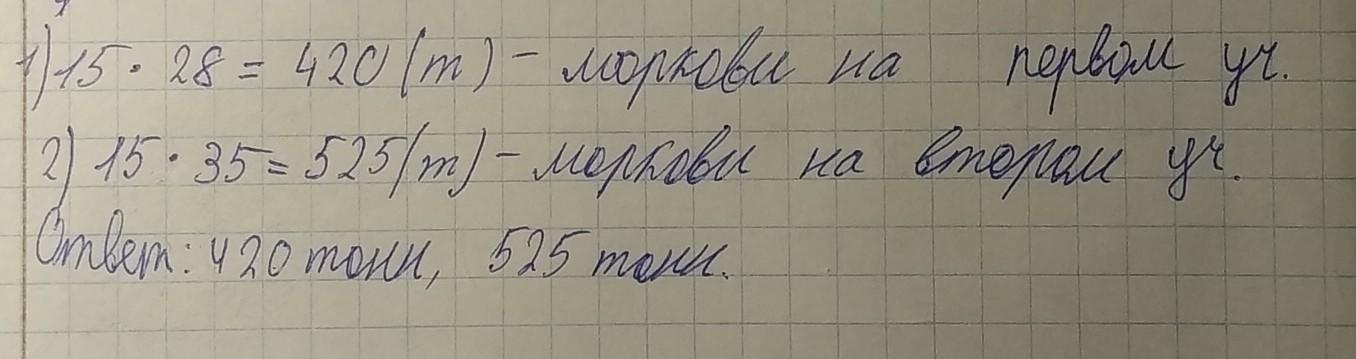 1) 15 · 28 = 420 (т) - моркови на первом уч.
2) 15 · 35 = 525 (т) - моркови на втором уч.
Ответ: 420 тонн, 525 тонн.